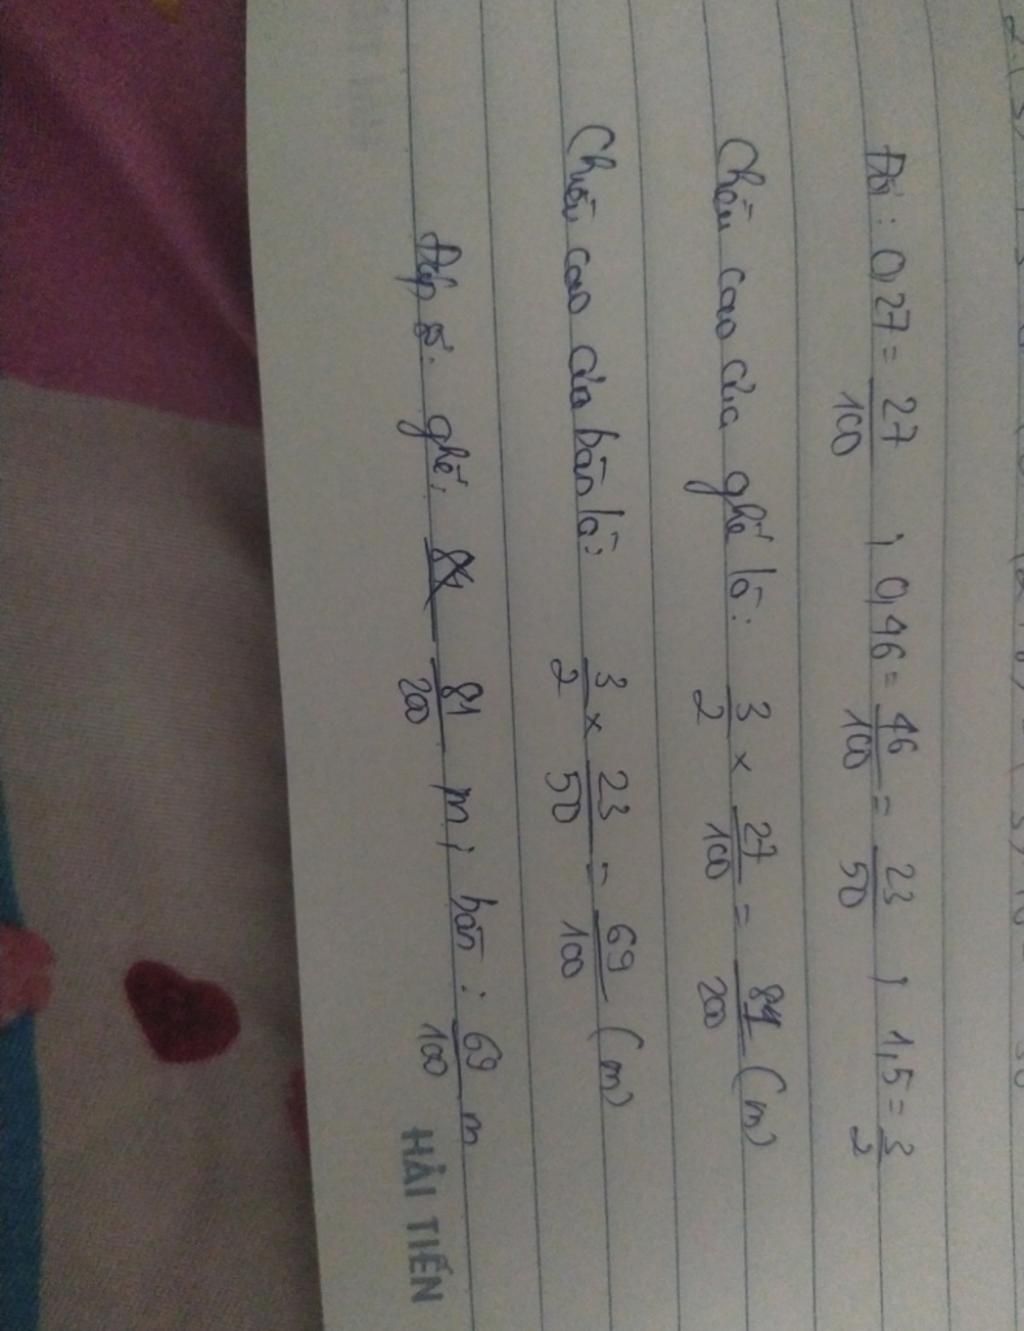 Đổi: 0,27 = 27/100 ; 0,46 = 46/100 = 23/50 ; 1,5 = 3/2
Chiều cao của ghế là: 3/2 × 27/100 = 81/200 (m)
Chiều cao của bàn là: 3/2 × 23/50 = 69/100 (m)
Đáp số: ghế: 81/200 m ; bàn : 69/100 m
HẢI TIẾN